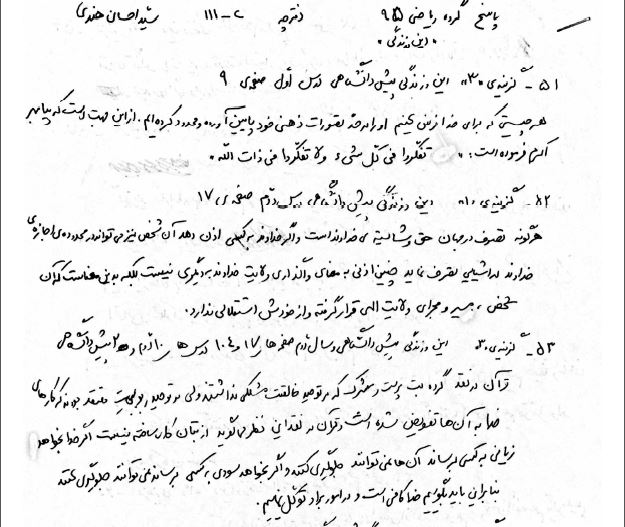 پاسخ گروه ریاضی ۹۵ دفترچه ۲-۱۱۱ سید احسان هندی
«دین زندگی»
۵۱- گزینه‌ی «۳» دین و زندگی پیش دانشگاهی درس اول صفحه‌ی ۹
هر چیستی که برای خدا فرض کنیم او را در حد تصورات ذهنی خود پایین آورده و محدود کرده‌ایم. از این جهت است که پیامبر
اکرم فرموده است: «تفکروا فی کل شیء ولا تفکروا فی ذات الله»
۵۲- گزینه‌ی «۱» دین و زندگی پیش دانشگاهی درس دوم صفحه‌ی ۱۷
هرگونه تصرف در جهان حق و شایسته‌ی خداوند است و اگر خداوند به کسی اذن دهد آن شخص نیز می‌تواند در محدوده‌ی اجازه‌ی
خداوند در اشیاء تصرف نماید چنین اذنی به معنای واگذاری ولایت خداوند به دیگری نیست بلکه بدین معناست که آن
شخص، مسیر و مجرای ولایت الهی قرار گرفته و از خودش استقلالی ندارد.
۵۳- گزینه‌ی «۳» دین و زندگی پیش دانشگاهی و سال دوم صفحه‌ها ۱۷ و ۱۰۴ درس‌ها ۱۰ دوم و ۲ پیش دانشگاهی
قرآن در نقد گروه بت پرست و مشرک که در توحید خالقیت مشکلی نداشتند ولی در توحید ربوبیت معتقد بودند که کارهای
خدا به آن‌ها تفویض شده است و قرآن در نقد این نظر می‌گوید از بتان کاری ساخته نیست اگر خدا بخواهد
زیانی به کسی برساند آن‌ها نمی‌توانند جلوگیری کنند و اگر بخواهد سودی به کسی برساند نمی‌توانند جلوگیری کنند
بنابراین باید بگوییم خدا کافی است و در امور بر او توکل نماییم.